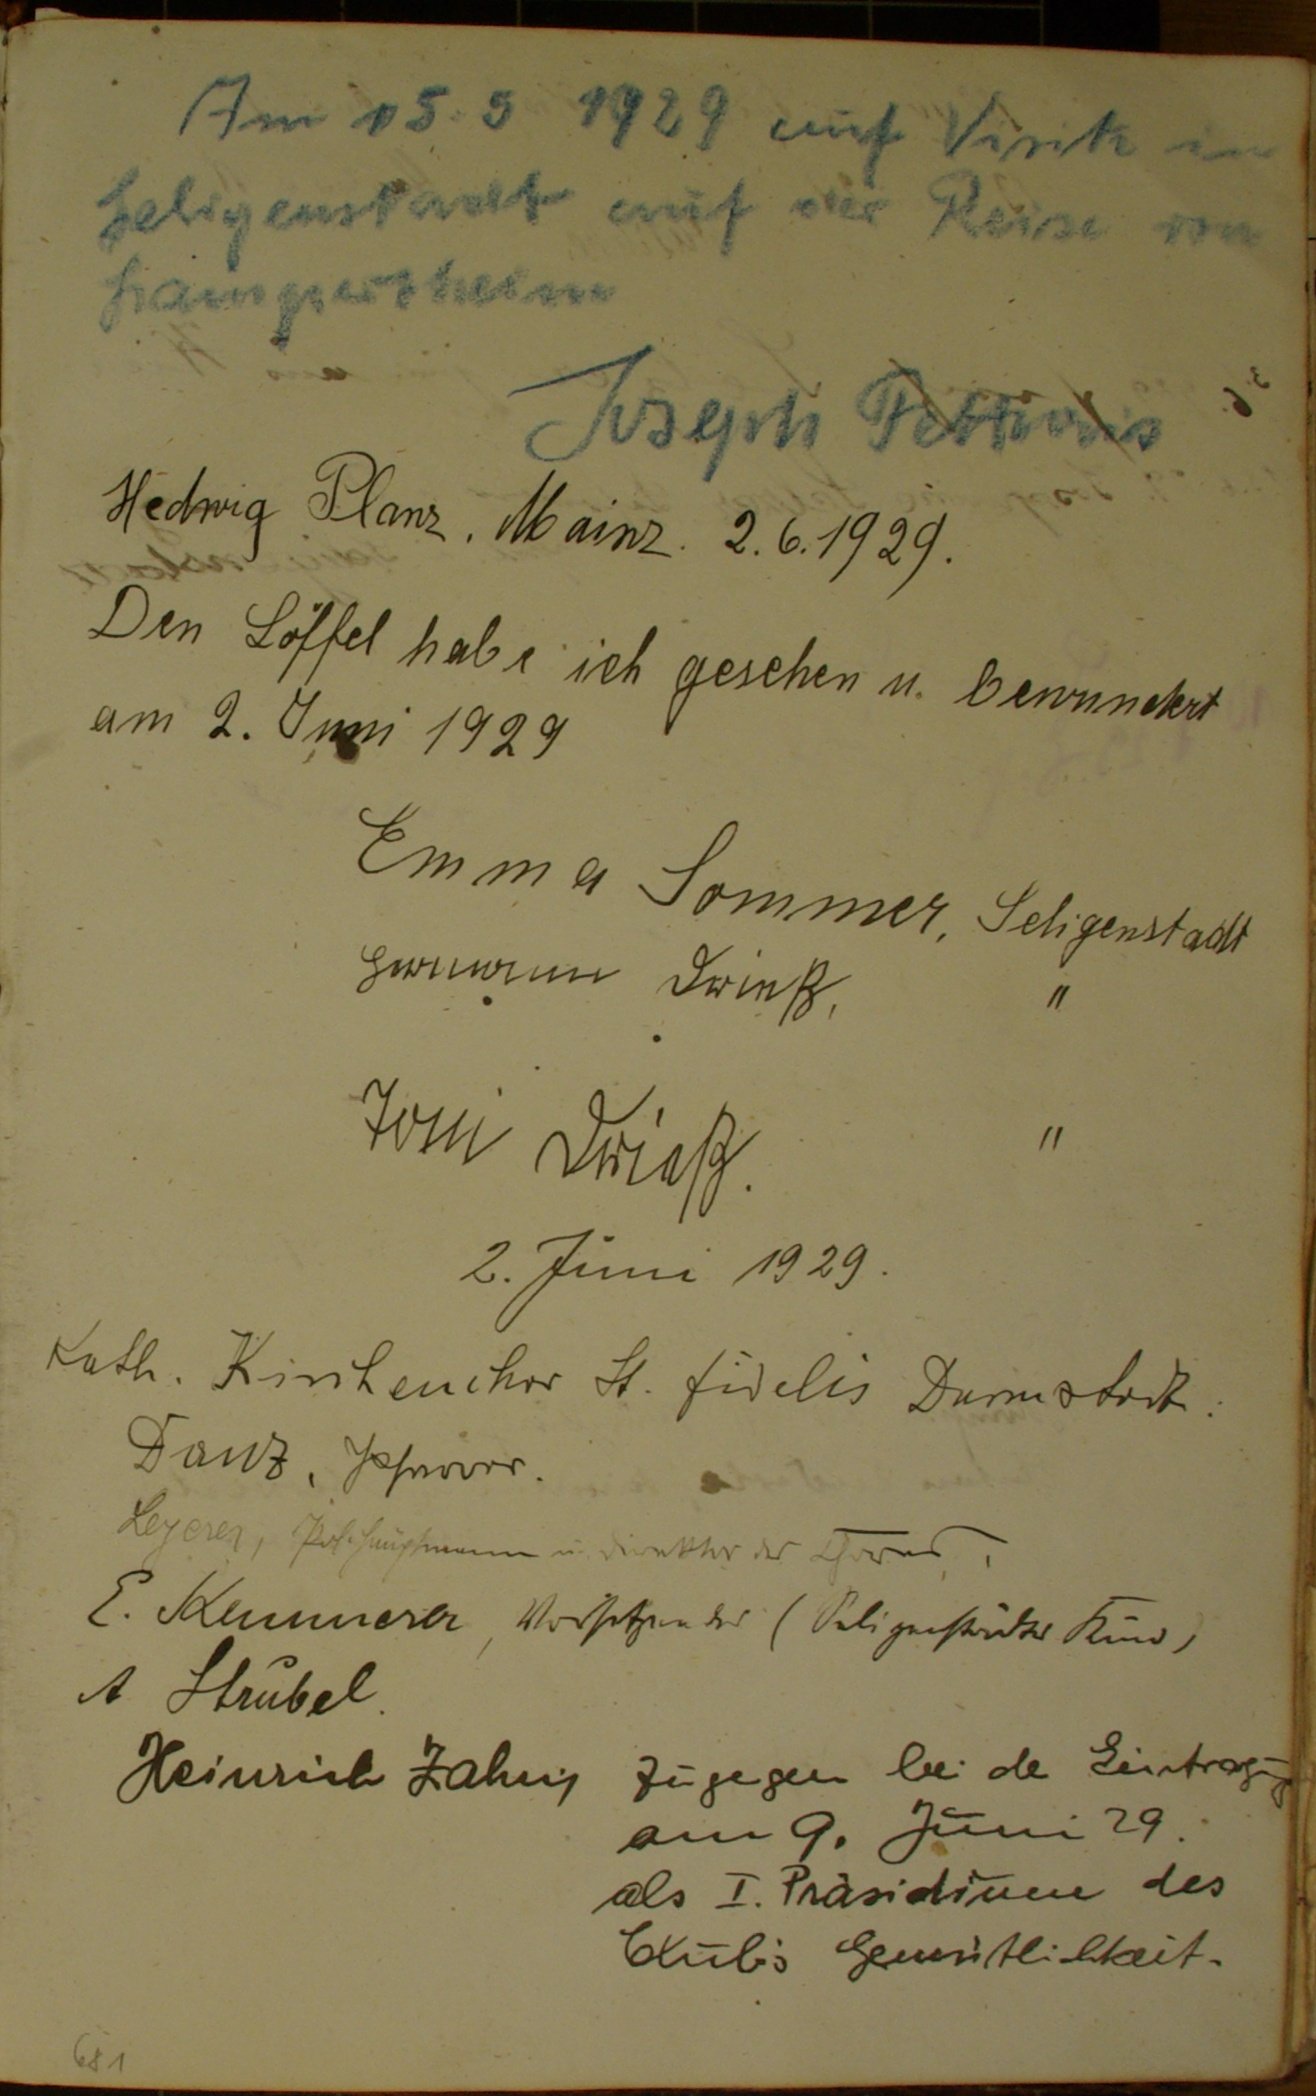 Am 15. 5 1929 auf Visite in
Seligenstadt auf der Reise von
Joseph
Hedwig Planz, Mainz. 2. 6. 1929.
Den Löffel habe ich gesehen u. bewundert
am 2. Juni 1929
Emma Sommer, Seligenstadt
Hermann "
Toni "
2. Juni 1929.
Kath. Kirchenchor St. Fidelis Darmstadt.
Danz, Pfarrer.
Leyerer, Pol. Hauptmann u. Direktor des Chores,
E. Kemmerer, Vorsitzender (Seligenstädter Kind)
A Strübel.
Heinrich Zahn zugegen bei de Eintragung
am 9. Juni 29.
als I. Präsidium des
Klubs Gemütlichkeit.
681